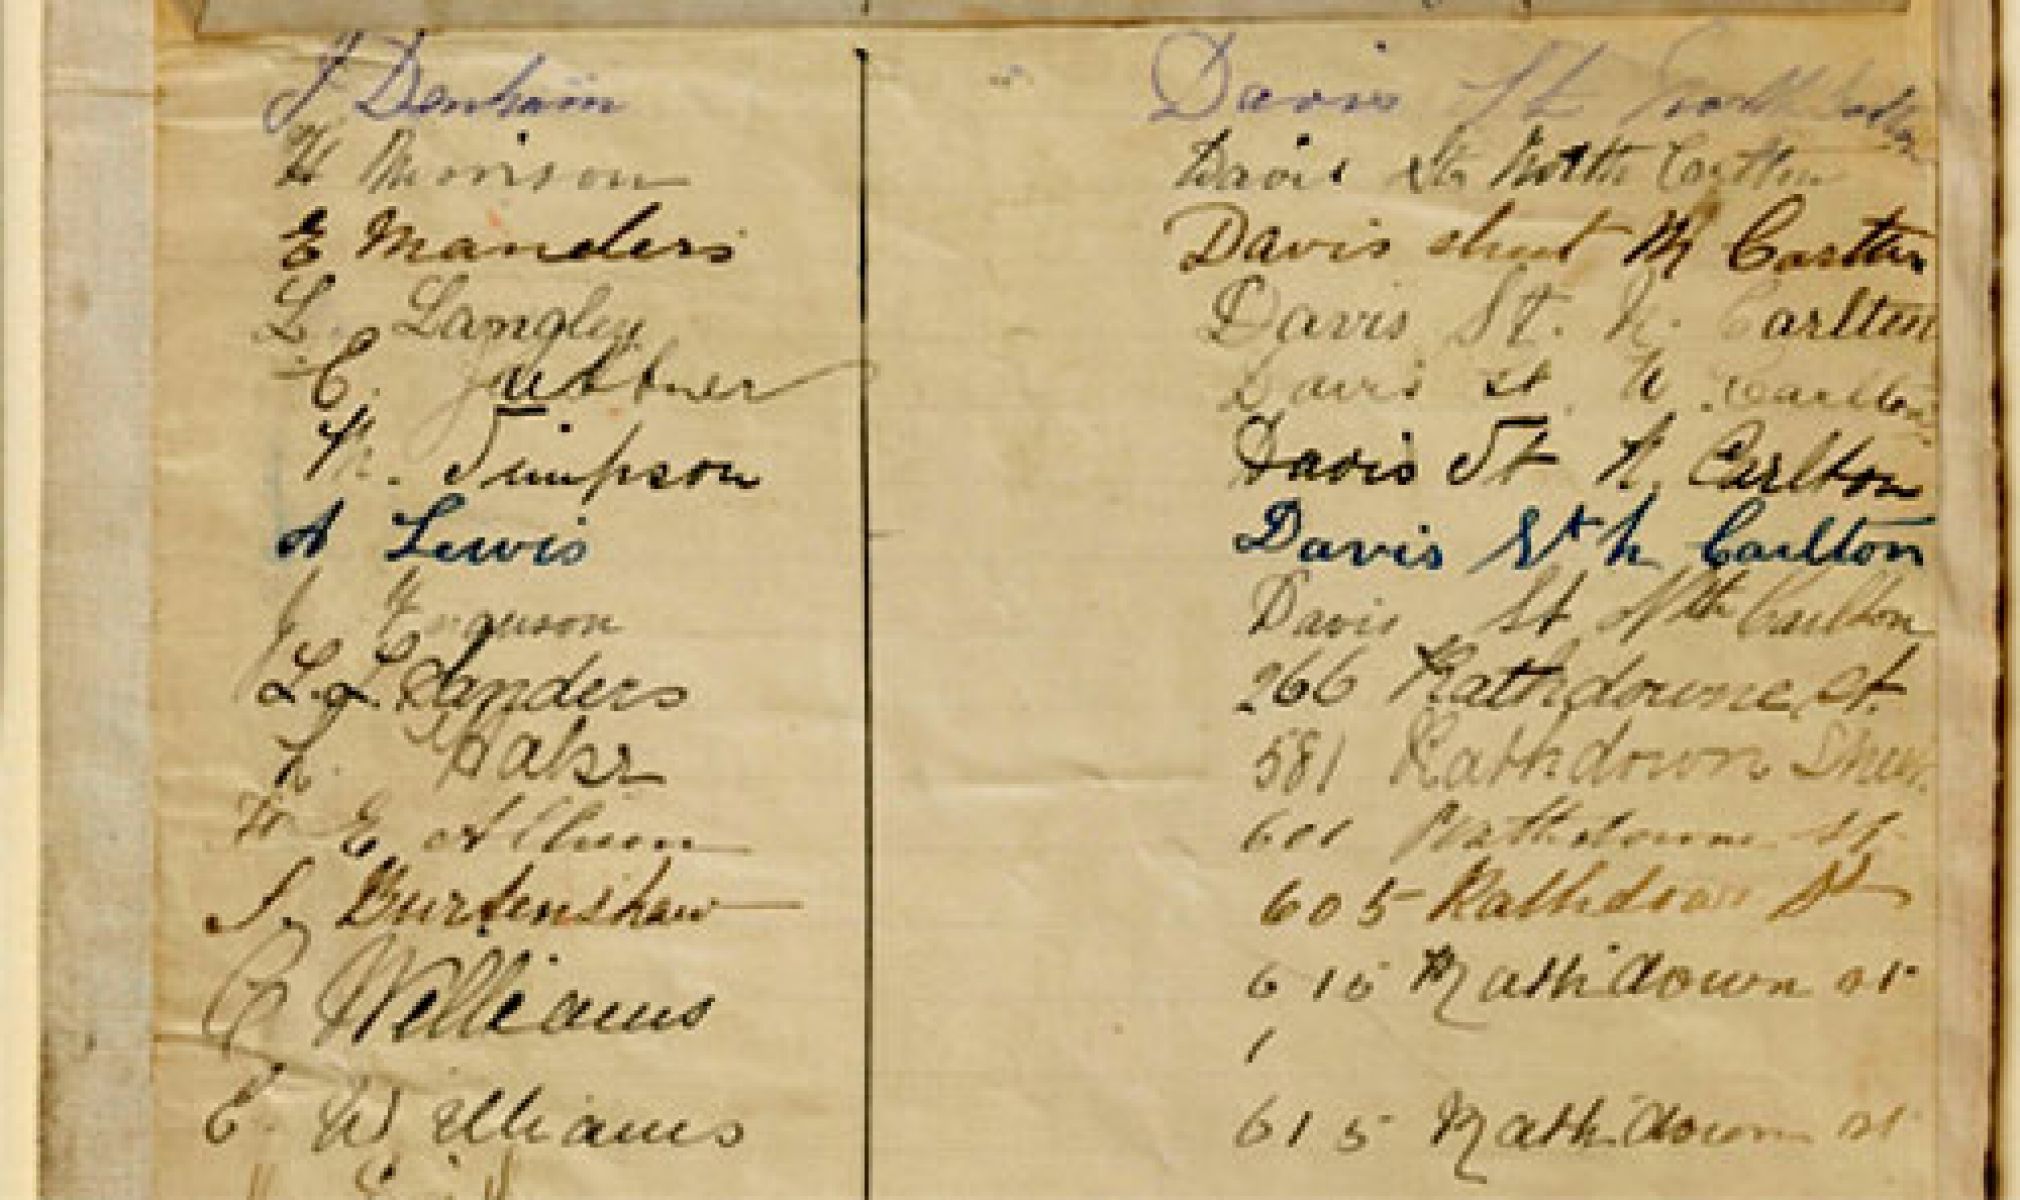 J Denham Davis St North
H Morrison Davis St North Carlton
E Manders Davis street N Carlton
L. Langley Davis St. N. Carlton
C. Juttner Davis St. N. Carlton
M. Timpson Davis St N. Carlton
A Lewis Davis St N Carlton
J Ferguson Davis St Nth Carlton
L. L. Sanders 266 Rathdowne St.
581 Rathdown Street
W E 601 Rathdowne St
S. Burtenshaw 605 Rathdown St
C Williams 615 Rathdown st
1
E. Williams 615 Rathdown st